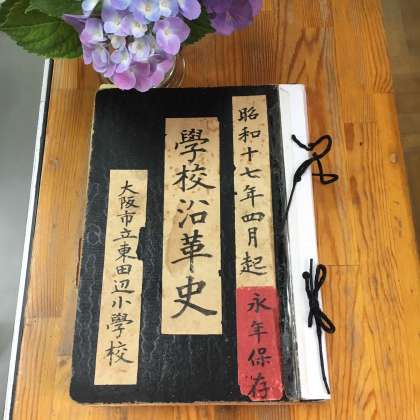 昭和十七年四月起
永年保存
學校沿革史
大阪市立東田辺小學校